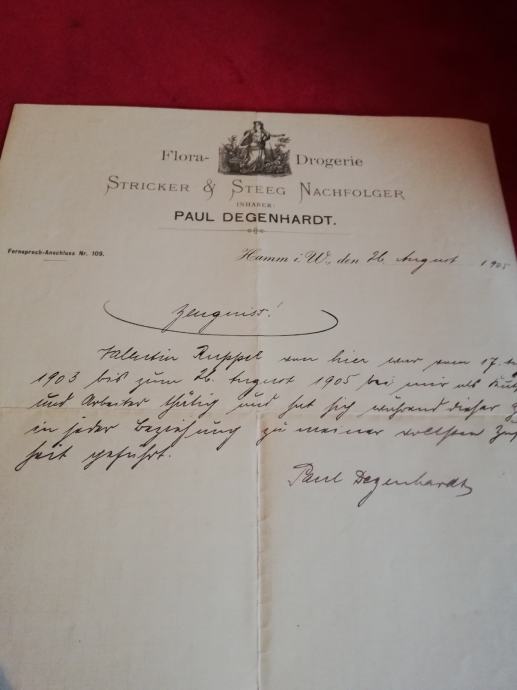 Flora- Drogerie
STRICKER & STEEG NACHFOLGER
INHABER:
PAUL DEGENHARDT.
Fernsprech-Anschluss Nr. 109.
Hamm i. W., den 26. August 1905
Zeugnis!
Valentin Ruppel von hier war vom 17.
1903 bis zum 26. August 1905 bei mir als
und Arbeiter thätig und hat sich während dieser
in jeder Beziehung zu meiner vollsten
heit geführt.
Paul Degenhardt